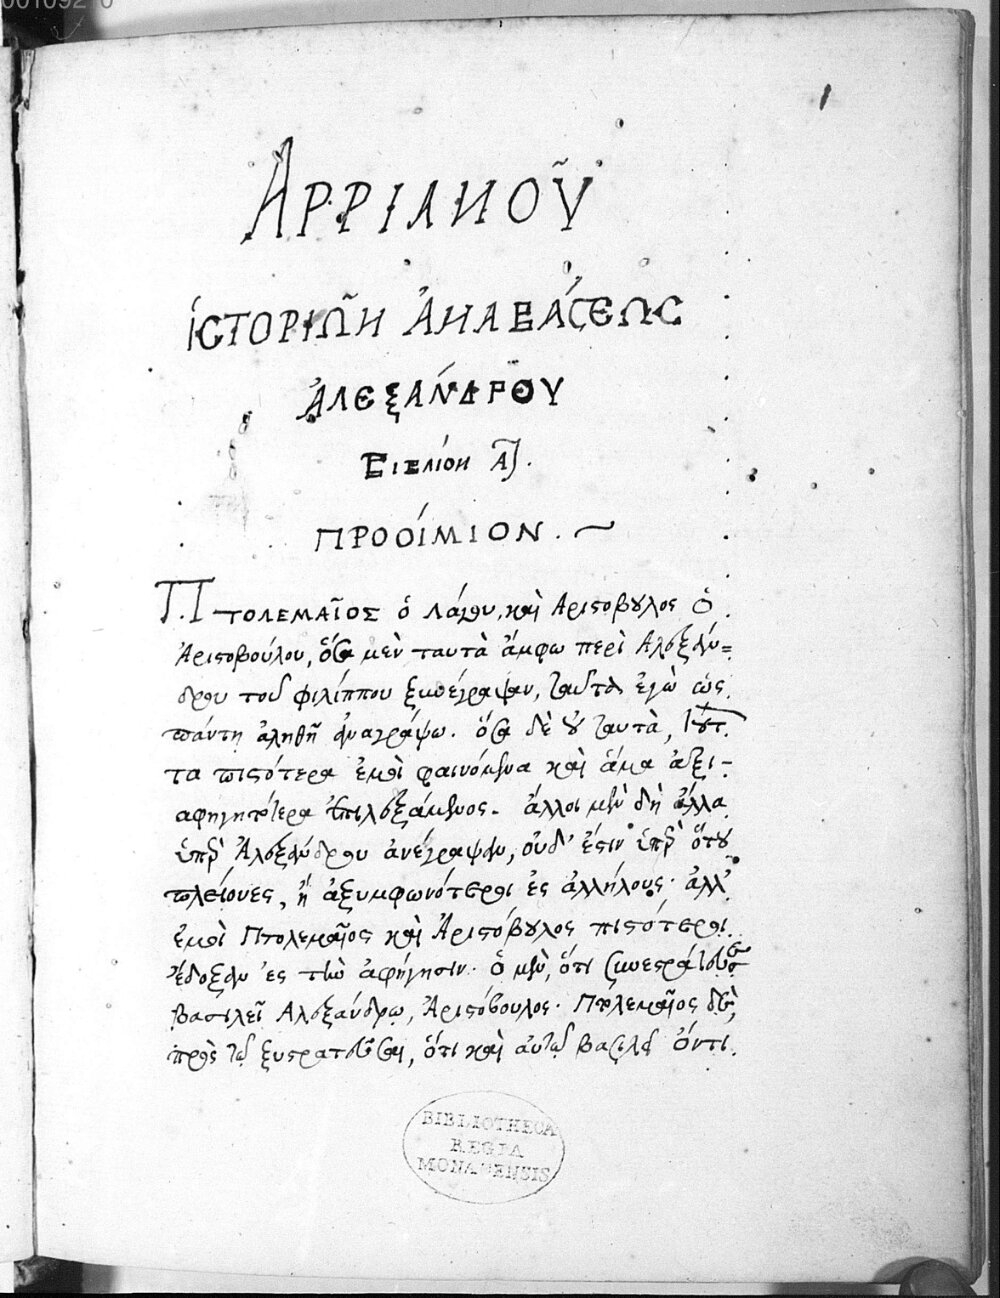 00109210
1
ἈΡΡΙΑΝΟῦ
ἱΣΤΟΡΙῶΝ ἈΝΑΒΆΣΕΩΣ
ἈΛΕΞΆΝΔΡΟΥ
ΒΙΒΛΊΟΝ Α.
ΠΡΟΟΊΜΙΟΝ. ~
ΠΤΟΛΕΜΑῖΟΣ ὁ Λάγου, καὶ Ἀριστόβουλος ὁ
Ἀριστοβούλου, ὅσα μὲν ταυτὰ ἄμφω περὶ Ἀλεξάν=
δρου τοῦ φιλίππου ξυνέγραψαν, ταῦτα ἐγὼ ὡς
πάντη ἀληθῆ ἀναγράφω. ὅσα δὲ οὐ ταυτὰ, τούτ.
τα πιστότερα ἐμοὶ φαινόμενα καὶ ἅμα ἀξι-
αφηγητότερα ἐπιλεξάμενος. ἄλλοι μὲν δὴ ἄλλα
ὑπὲρ Ἀλεξάνδρου ἀνέγραψαν, οὐδ' ἔστιν ὑπὲρ ὅτου
πλείονες, ἢ ἀξυμφωνότεροι ἐς ἀλλήλους· ἀλλ'
ἐμοὶ Πτολεμαῖος καὶ Ἀριστόβουλος πιστότεροι
ἔδοξαν ἐς τὴν ἀφήγησιν· ὁ μὲν, ὅτι συνεστράτευσε
βασιλεῖ Ἀλεξάνδρῳ, Ἀριστόβουλος· Πτολεμαῖος δὲ,
πρὸς τῷ ξυστρατεῦσαι, ὅτι καὶ αὐτῷ βασιλεῖ ὄντι
BIBLIOTHECA
REGIA
MONACENSIS